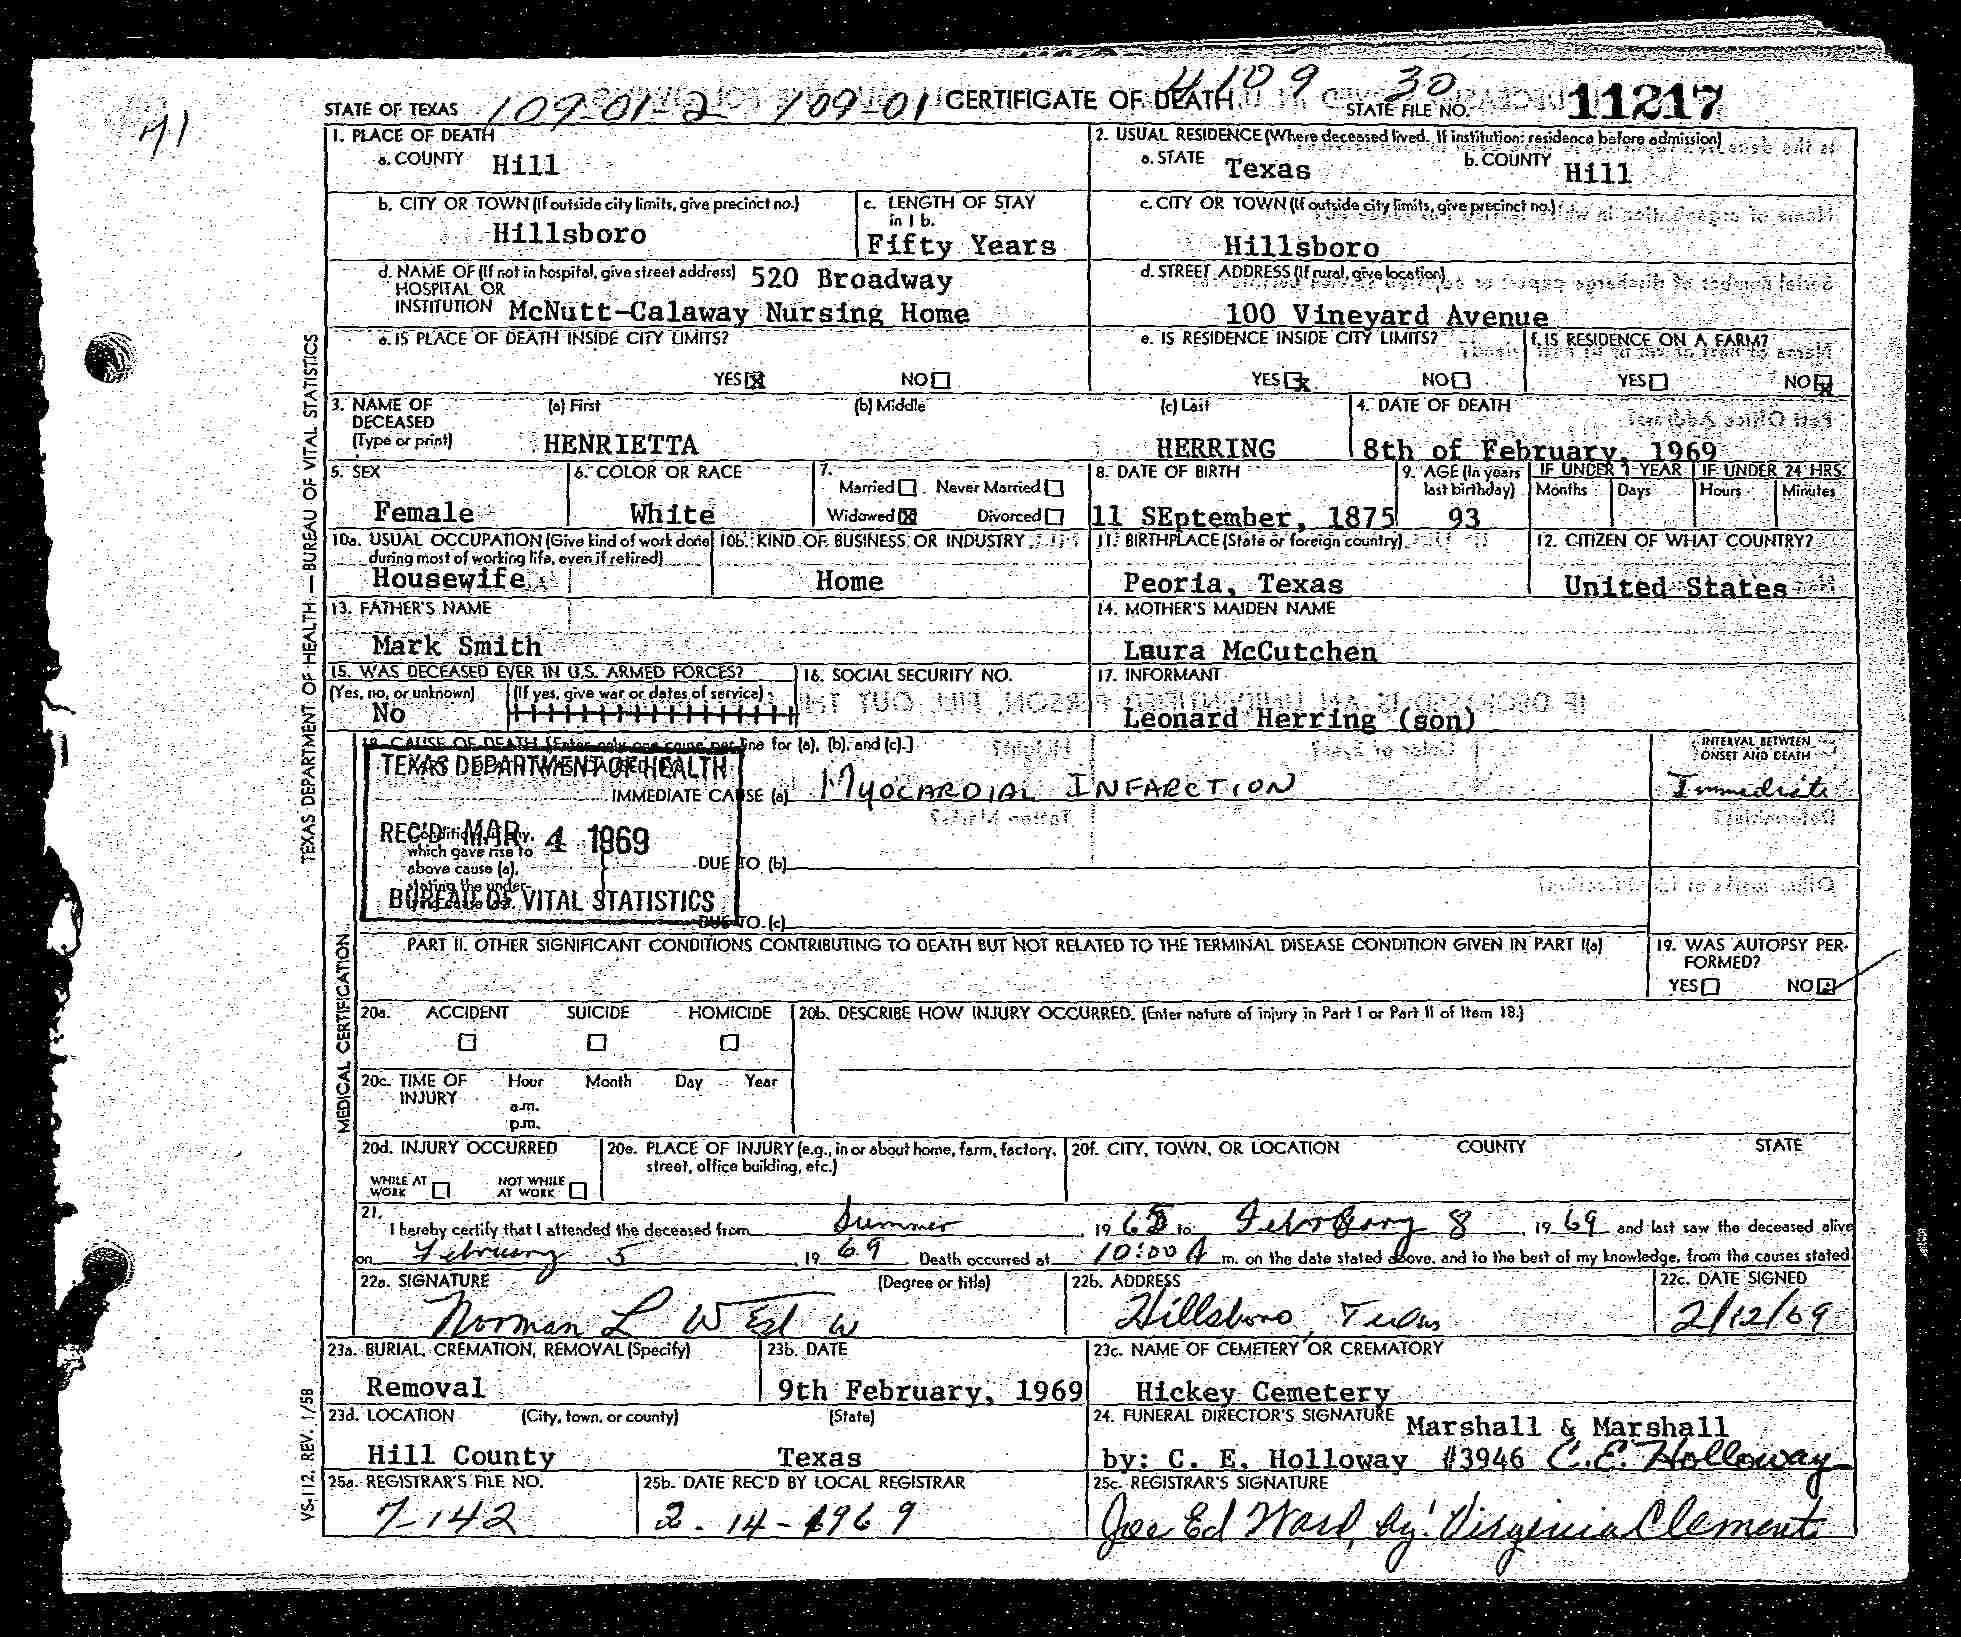 71
4109 30
STATE OF TEXAS 109-01-2 109-01 CERTIFICATE OF DEATH STATE FILE NO. 11217
1. PLACE OF DEATH
a. COUNTY Hill
2. USUAL RESIDENCE (Where deceased lived. If institution: residence before admission)
a. STATE Texas b. COUNTY Hill
b. CITY OR TOWN (If outside city limits, give precinct no.)
Hillsboro
c. LENGTH OF STAY
in 1 b.
Fifty Years
c. CITY OR TOWN (If outside city limits, give precinct no.)
Hillsboro
d. NAME OF (If not in hospital, give street address) 520 Broadway
HOSPITAL OR
INSTITUTION McNutt-Calaway Nursing Home
d. STREET ADDRESS (If rural, give location)
100 Vineyard Avenue
e. IS PLACE OF DEATH INSIDE CITY LIMITS?
YES☒ NO☐
e. IS RESIDENCE INSIDE CITY LIMITS?
YES☒ NO☐
f. IS RESIDENCE ON A FARM?
YES☐ NO☒
3. NAME OF
DECEASED
(Type or print)
(a) First (b) Middle (c) Last
HENRIETTA HERRING
4. DATE OF DEATH
8th of February, 1969
5. SEX
Female
6. COLOR OR RACE
White
7.
Married☐ Never Married☐
Widowed☒ Divorced☐
8. DATE OF BIRTH
11 SEptember, 1875
9. AGE (In years
last birthday)
93
IF UNDER 1 YEAR IF UNDER 24 HRS.
Months Days Hours Minutes
10a. USUAL OCCUPATION (Give kind of work done
during most of working life, even if retired)
Housewife
10b. KIND OF BUSINESS OR INDUSTRY
Home
11. BIRTHPLACE (State or foreign country)
Peoria, Texas
12. CITIZEN OF WHAT COUNTRY?
United States
13. FATHER'S NAME
Mark Smith
14. MOTHER'S MAIDEN NAME
Laura McCutchen
15. WAS DECEASED EVER IN U.S. ARMED FORCES?
(Yes, no, or unknown) (If yes, give war or dates of service)
No
16. SOCIAL SECURITY NO.
17. INFORMANT
Leonard Herring (son)
18. CAUSE OF DEATH [Enter only one cause per line for (a), (b), and (c).]
INTERVAL BETWEEN
ONSET AND DEATH
TEXAS DEPARTMENT OF HEALTH
REC'D MAR 4 1969
BUREAU OF VITAL STATISTICS
IMMEDIATE CAUSE (a) Myocardial Infarction Immediate
Conditions, if any,
which gave rise to
above cause (a),
stating the under-
lying cause last.
DUE TO (b)
DUE TO (c)
PART II. OTHER SIGNIFICANT CONDITIONS CONTRIBUTING TO DEATH BUT NOT RELATED TO THE TERMINAL DISEASE CONDITION GIVEN IN PART I(a)
19. WAS AUTOPSY PER-
FORMED?
YES☐ NO☒
20a. ACCIDENT SUICIDE HOMICIDE
20b. DESCRIBE HOW INJURY OCCURRED. (Enter nature of injury in Part I or Part II of Item 18.)
20c. TIME OF
INJURY
Hour Month Day Year
a.m.
p.m.
20d. INJURY OCCURRED
WHILE AT
WORK ☐
NOT WHILE
AT WORK ☐
20e. PLACE OF INJURY (e.g., in or about home, farm, factory,
street, office building, etc.)
20f. CITY, TOWN, OR LOCATION COUNTY STATE
21.
I hereby certify that I attended the deceased from Summer, 1965 to February 8, 1969 and last saw the deceased alive
on February 5, 1969 Death occurred at 10:00 A m. on the date stated above, and to the best of my knowledge, from the causes stated
22a. SIGNATURE (Degree or title)
Norman L West
22b. ADDRESS
Hillsboro, Texas
22c. DATE SIGNED
2/12/69
23a. BURIAL, CREMATION, REMOVAL (Specify)
Removal
23b. DATE
9th February, 1969
23c. NAME OF CEMETERY OR CREMATORY
Hickey Cemetery
23d. LOCATION (City, town, or county) (State)
Hill County Texas
24. FUNERAL DIRECTOR'S SIGNATURE Marshall & Marshall
by: C. E. Holloway #3946 C.E. Holloway
25a. REGISTRAR'S FILE NO.
7-142
25b. DATE REC'D BY LOCAL REGISTRAR
2-14-1969
25c. REGISTRAR'S SIGNATURE
Joe Ed Ward, by: Virginia Clement
TEXAS DEPARTMENT OF HEALTH — BUREAU OF VITAL STATISTICS
MEDICAL CERTIFICATION
VS-112. REV. 1/58